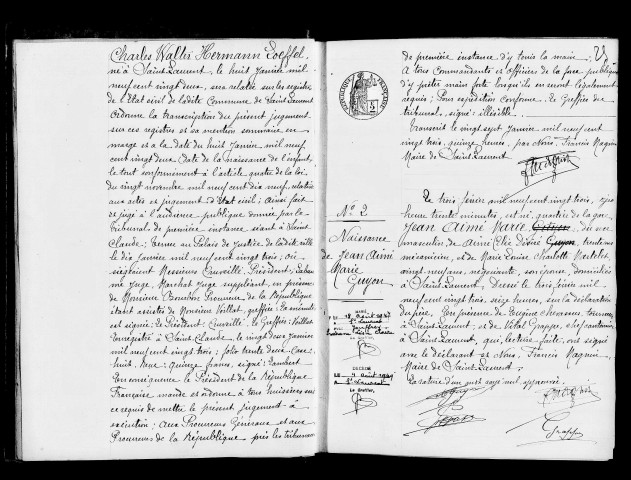 Charles Walter Hermann Loeffel,
né à Saint-Laurent, le huit Janvier mil
neuf cent vingt deux, sera relatée sur les registres
de l'Etat civil de ladite Commune de Saint-Laurent
Ordonne la transcription du présent jugement
sur ces registres et sa mention sommaire en
marge et à la date du huit Janvier mil neuf
cent vingt deux Date de la naissance de l'enfant,
le tout conformément à l'article quatre de la loi
du vingt novembre mil neuf cent dix neuf, relative
aux actes et jugements d'état civil; ainsi fait
et jugé à l'audience publique donnée par le
tribunal de première instance séant à Saint
Claude; tenue au Palais de Justice de ladite ville
le dix Janvier mil neuf cent vingt trois; où
siégeaient Messieurs Président,
Juge, Juge suppléant, en présence
de Monsieur Procureur de la République
étant assistés de Monsieur Voillat, greffier; La minute
est signée: le Président: le Greffier: Voillat
Enregistré à Saint-Claude, le vingt deux Janvier
mil neuf cent vingt trois; folio trente deux Case
huit. Reçu: Quinze francs, signé: Lambert
En conséquence le Président de la République
Française mande et ordonne à tous huissiers sur
ce requis de mettre le présent jugement à
exécution; aux Procureurs Généraux et aux
Procureurs de la République près les tribunaux
de première instance d'y tenir la main;
A tous Commandants et Officiers de la force publique
d'y prêter main forte lorsqu'ils en seront légalement
requis; Pour expédition conforme. Le Greffier du
tribunal, signé: illisible.
Transcrit le vingt sept Janvier mil neuf cent
vingt trois, quinze heures, par Nous, Francis Magnin
Maire de Saint-Laurent
RÉPUBLIQUE FRANÇAISE
N° 2
Naissance
de Jean Aimé
Marie
Guyon
Le trois février mil neuf cent vingt trois,
heure trente minutes, est né, quartier de la gare,
Jean Aimé Marie, du sexe
masculin de Aimé Guyon,
mécanicien, et de Marie Louise Charlotte
vingt neuf ans, négociante, son épouse, domiciliés
à Saint-Laurent. Dressé le trois février mil
neuf cent vingt trois, seize heures, sur la déclaration
du père, En présence de Eugène
à Saint-Laurent, et de Vital Grappe, chef cantonnier
à Saint-Laurent, qui, lecture faite, ont signé
avec le déclarant et Nous, Francis Magnin
Maire de Saint-Laurent.
La rature d'un mot rayé nul, approuvée.
MARIÉ
Le 18 Août
à St Laurent
Le Greffier,
DÉCÉDÉ
LE 4 Août
A St Laurent
Le Greffier,